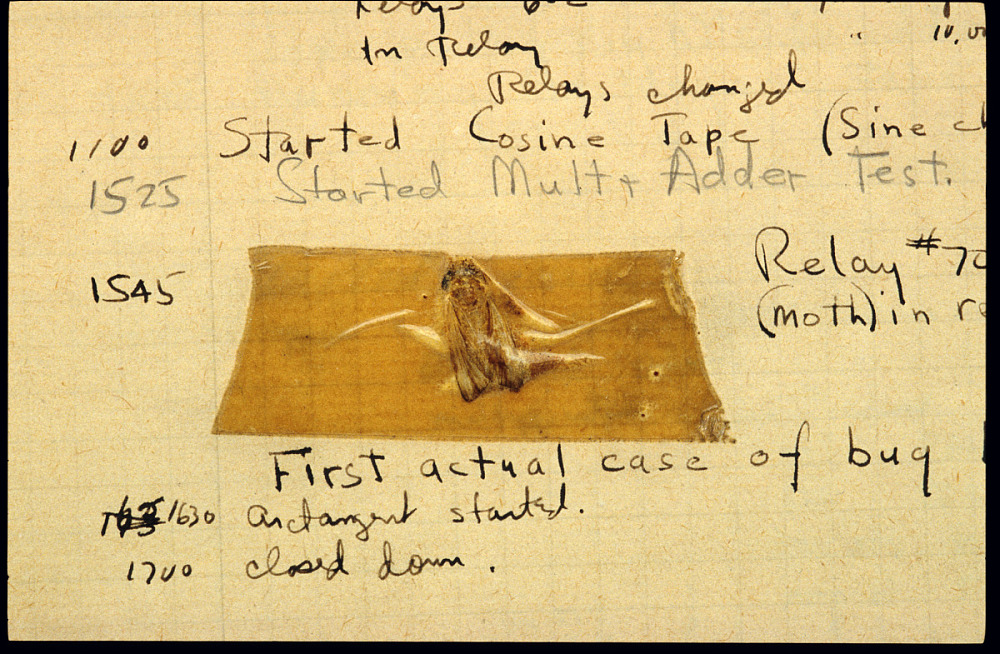 Relays
in Relay " 10,00
Relays changed
1100 Started Cosine Tape (Sine ch
1525 Started Mult+ Adder Test.
1545 Relay #70
(moth) in re
First actual case of bug
1630 arctangent started.
1700 closed down.